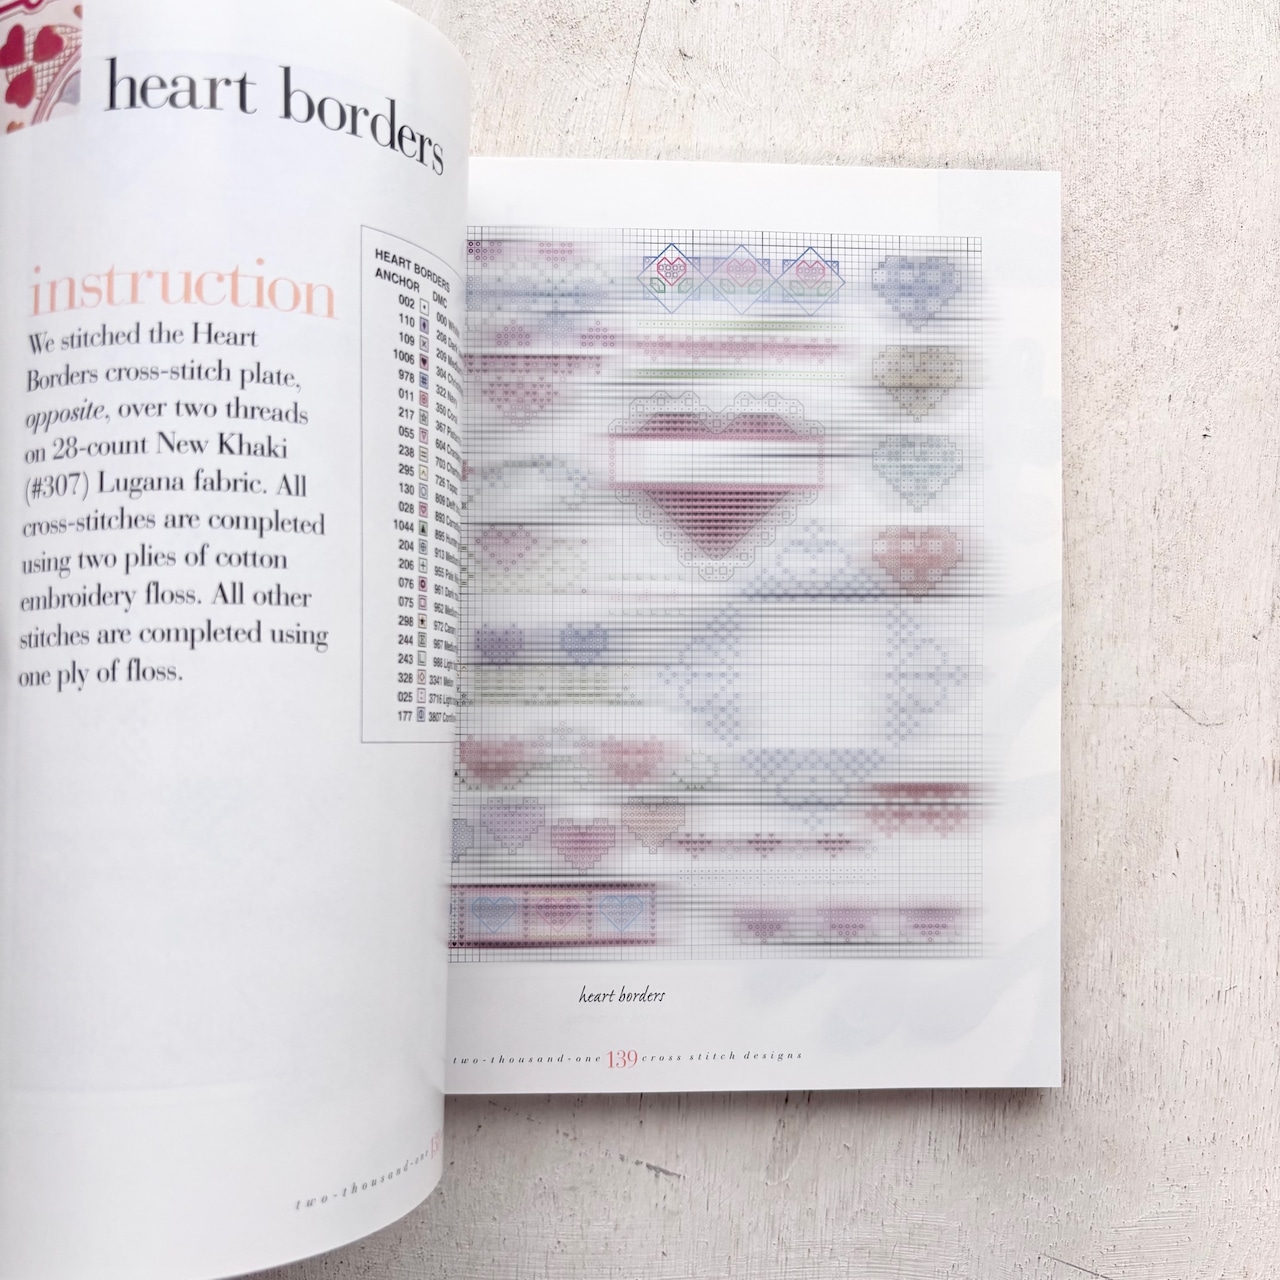 heart borders
instruction
We stitched the Heart
Borders cross-stitch plate,
opposite, over two threads
on 28-count New Khaki
(#307) Lugana fabric. All
cross-stitches are completed
using two plies of cotton
embroidery floss. All other
stitches are completed using
one ply of floss.
HEART BORDERS
ANCHOR DMC
002 000
110 208
109 209
1006 304
978 322
011 350
217 367
055 604
238 703
295 726
130 809
028 893
1044 895
204 913
206 955
076 961
075 962
298 972
244 987
243 988
328 3341
025 3716
177 3807
two-thousand-one
heart borders
two-thousand-one 139 cross stitch designs